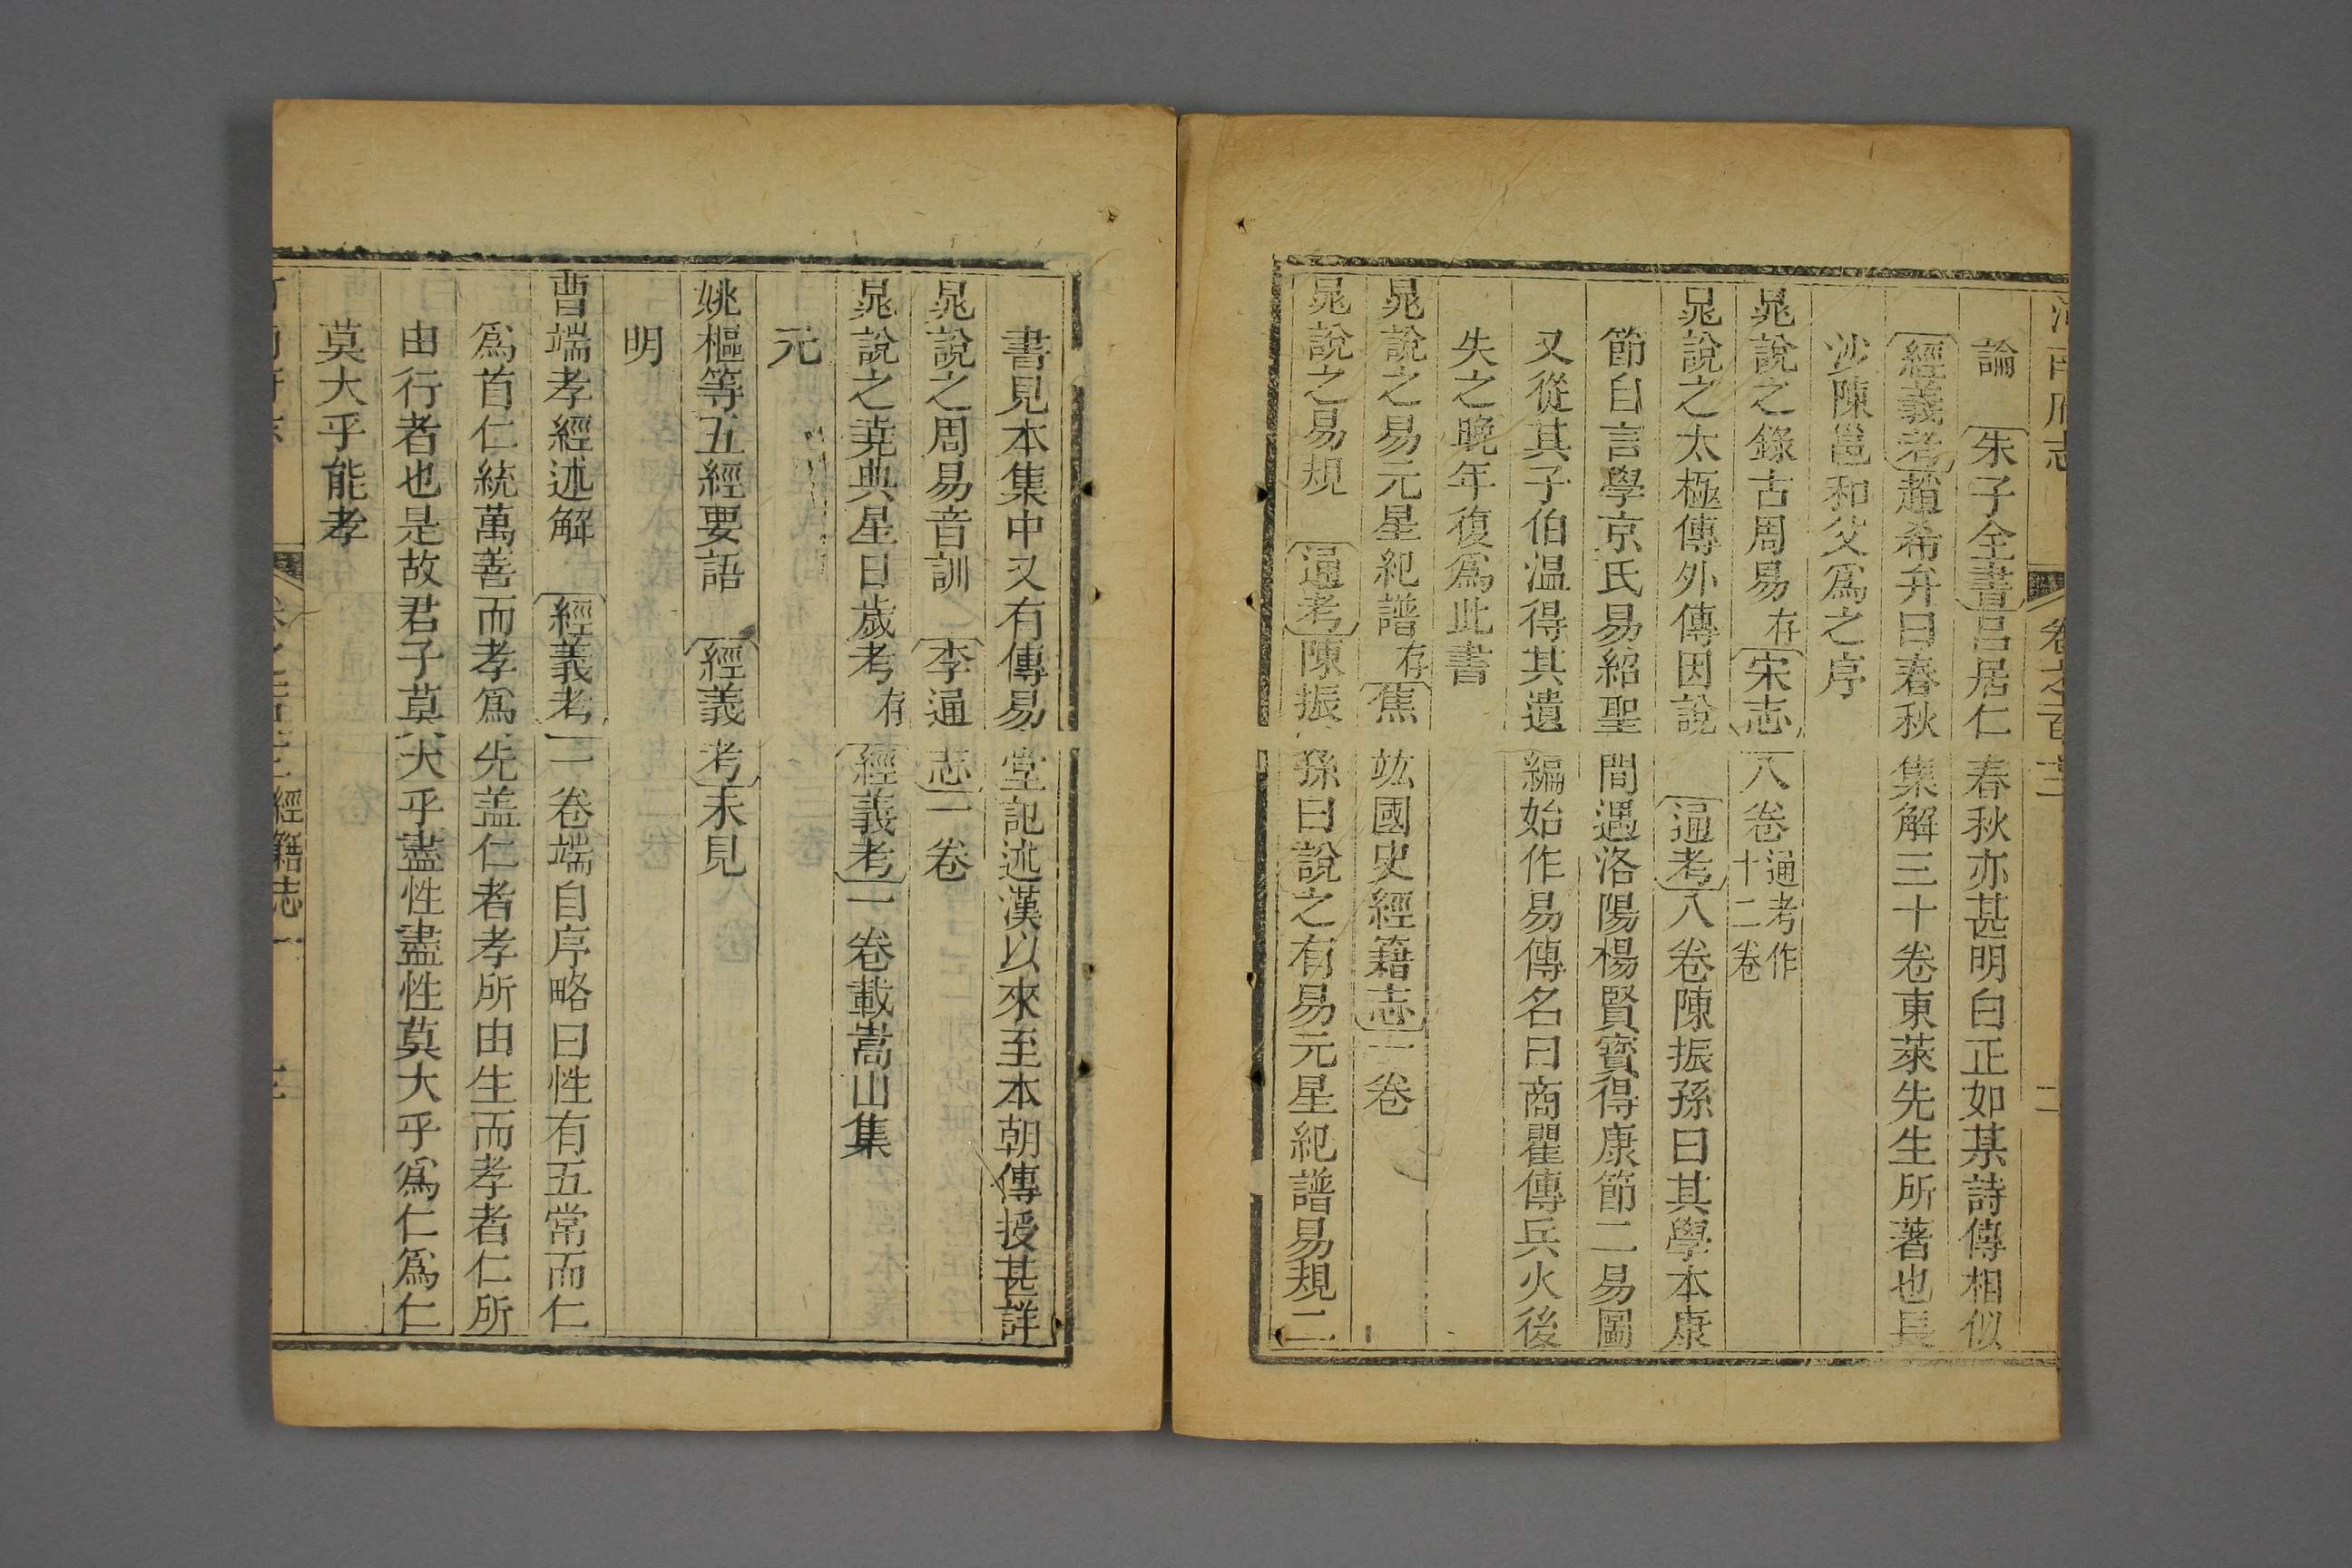 論 朱子全書呂居仁春秋亦甚明白正如某詩傳相似
經義考趙希弁曰春秋集解三十卷東萊先生所著也長
沙陳邕和父爲之序
晁說之錄古周易存宋志八卷通考作十二卷
晁說之太極傳外傳因說 通考八卷陳振孫曰其學本康
節自言學京氏易紹聖間遇洛陽楊賢寳得康節二易圖
又從其子伯温得其遺編始作易傳名曰商瞿傳兵火後
失之晚年復爲此書
晁說之易元星紀譜存焦竑國史經籍志一卷
晁說之易規 通考陳振孫曰說之有易元星紀譜易規二
書見本集中又有傳易堂記述漢以來至本朝傳授甚詳
晁說之周易音訓 李通志一卷
晁說之堯典星日歲考存 經義考一卷載嵩山集
元
姚樞等五經要語 經義考未見
明
曹端孝經述解 經義考一卷端自序略曰性有五常而仁
爲首仁統萬善而孝爲先盖仁者孝所由生而孝者仁所
由行者也是故君子莫大乎盡性盡性莫大乎爲仁爲仁
莫大乎能孝
經籍志一